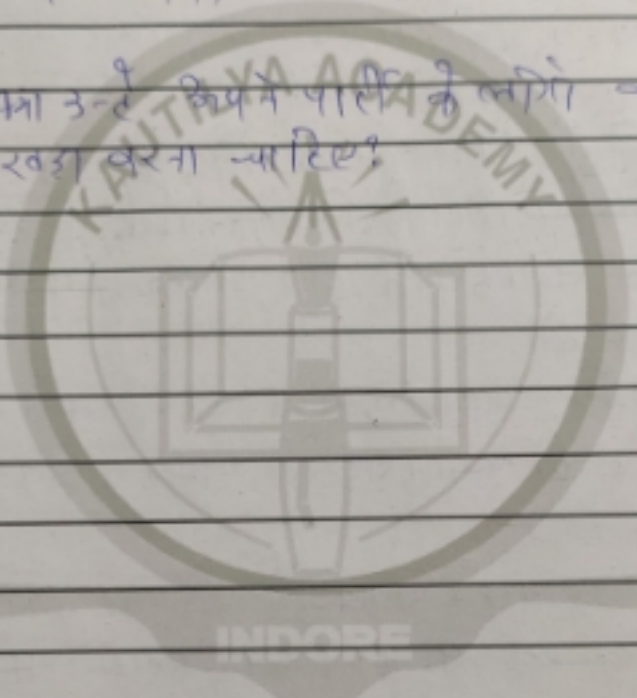 क्या उन्हे अपने पार्टी के लोगो
खड़ा करना चाहिए?
KAUTILYA ACADEMY
INDORE